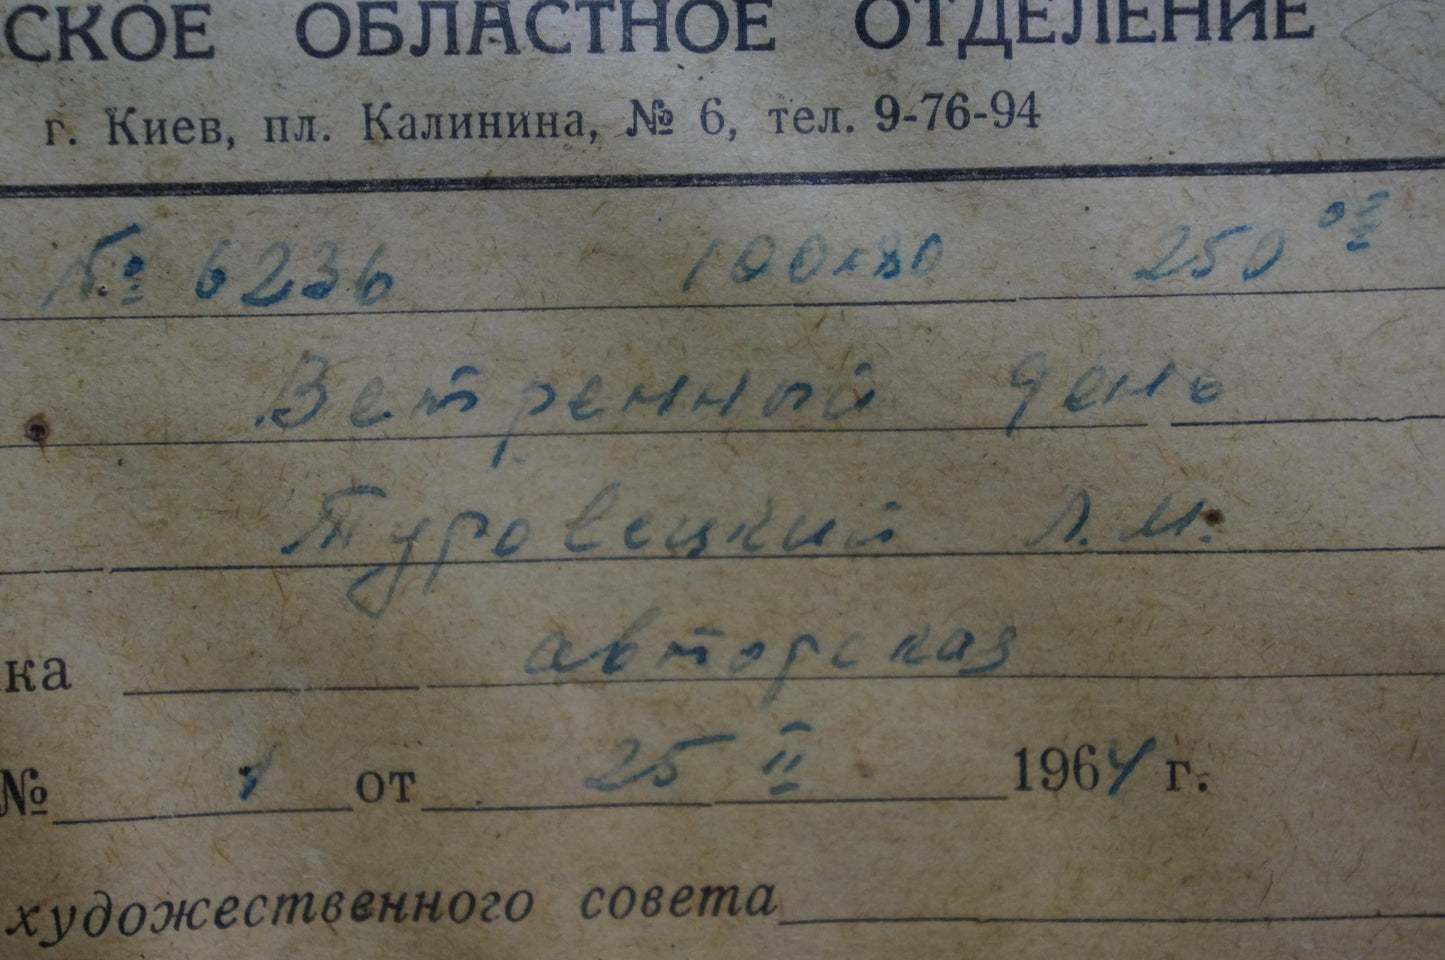 СКОЕ ОБЛАСТНОЕ ОТДЕЛЕНИЕ
г. Киев, пл. Калинина, № 6, тел. 9-76-94
№ 6236 100х80 250 00
Ветренный день
Туровецкий Л. М.
ка авторская
№ 1 от 25 II 1964 г.
художественного совета